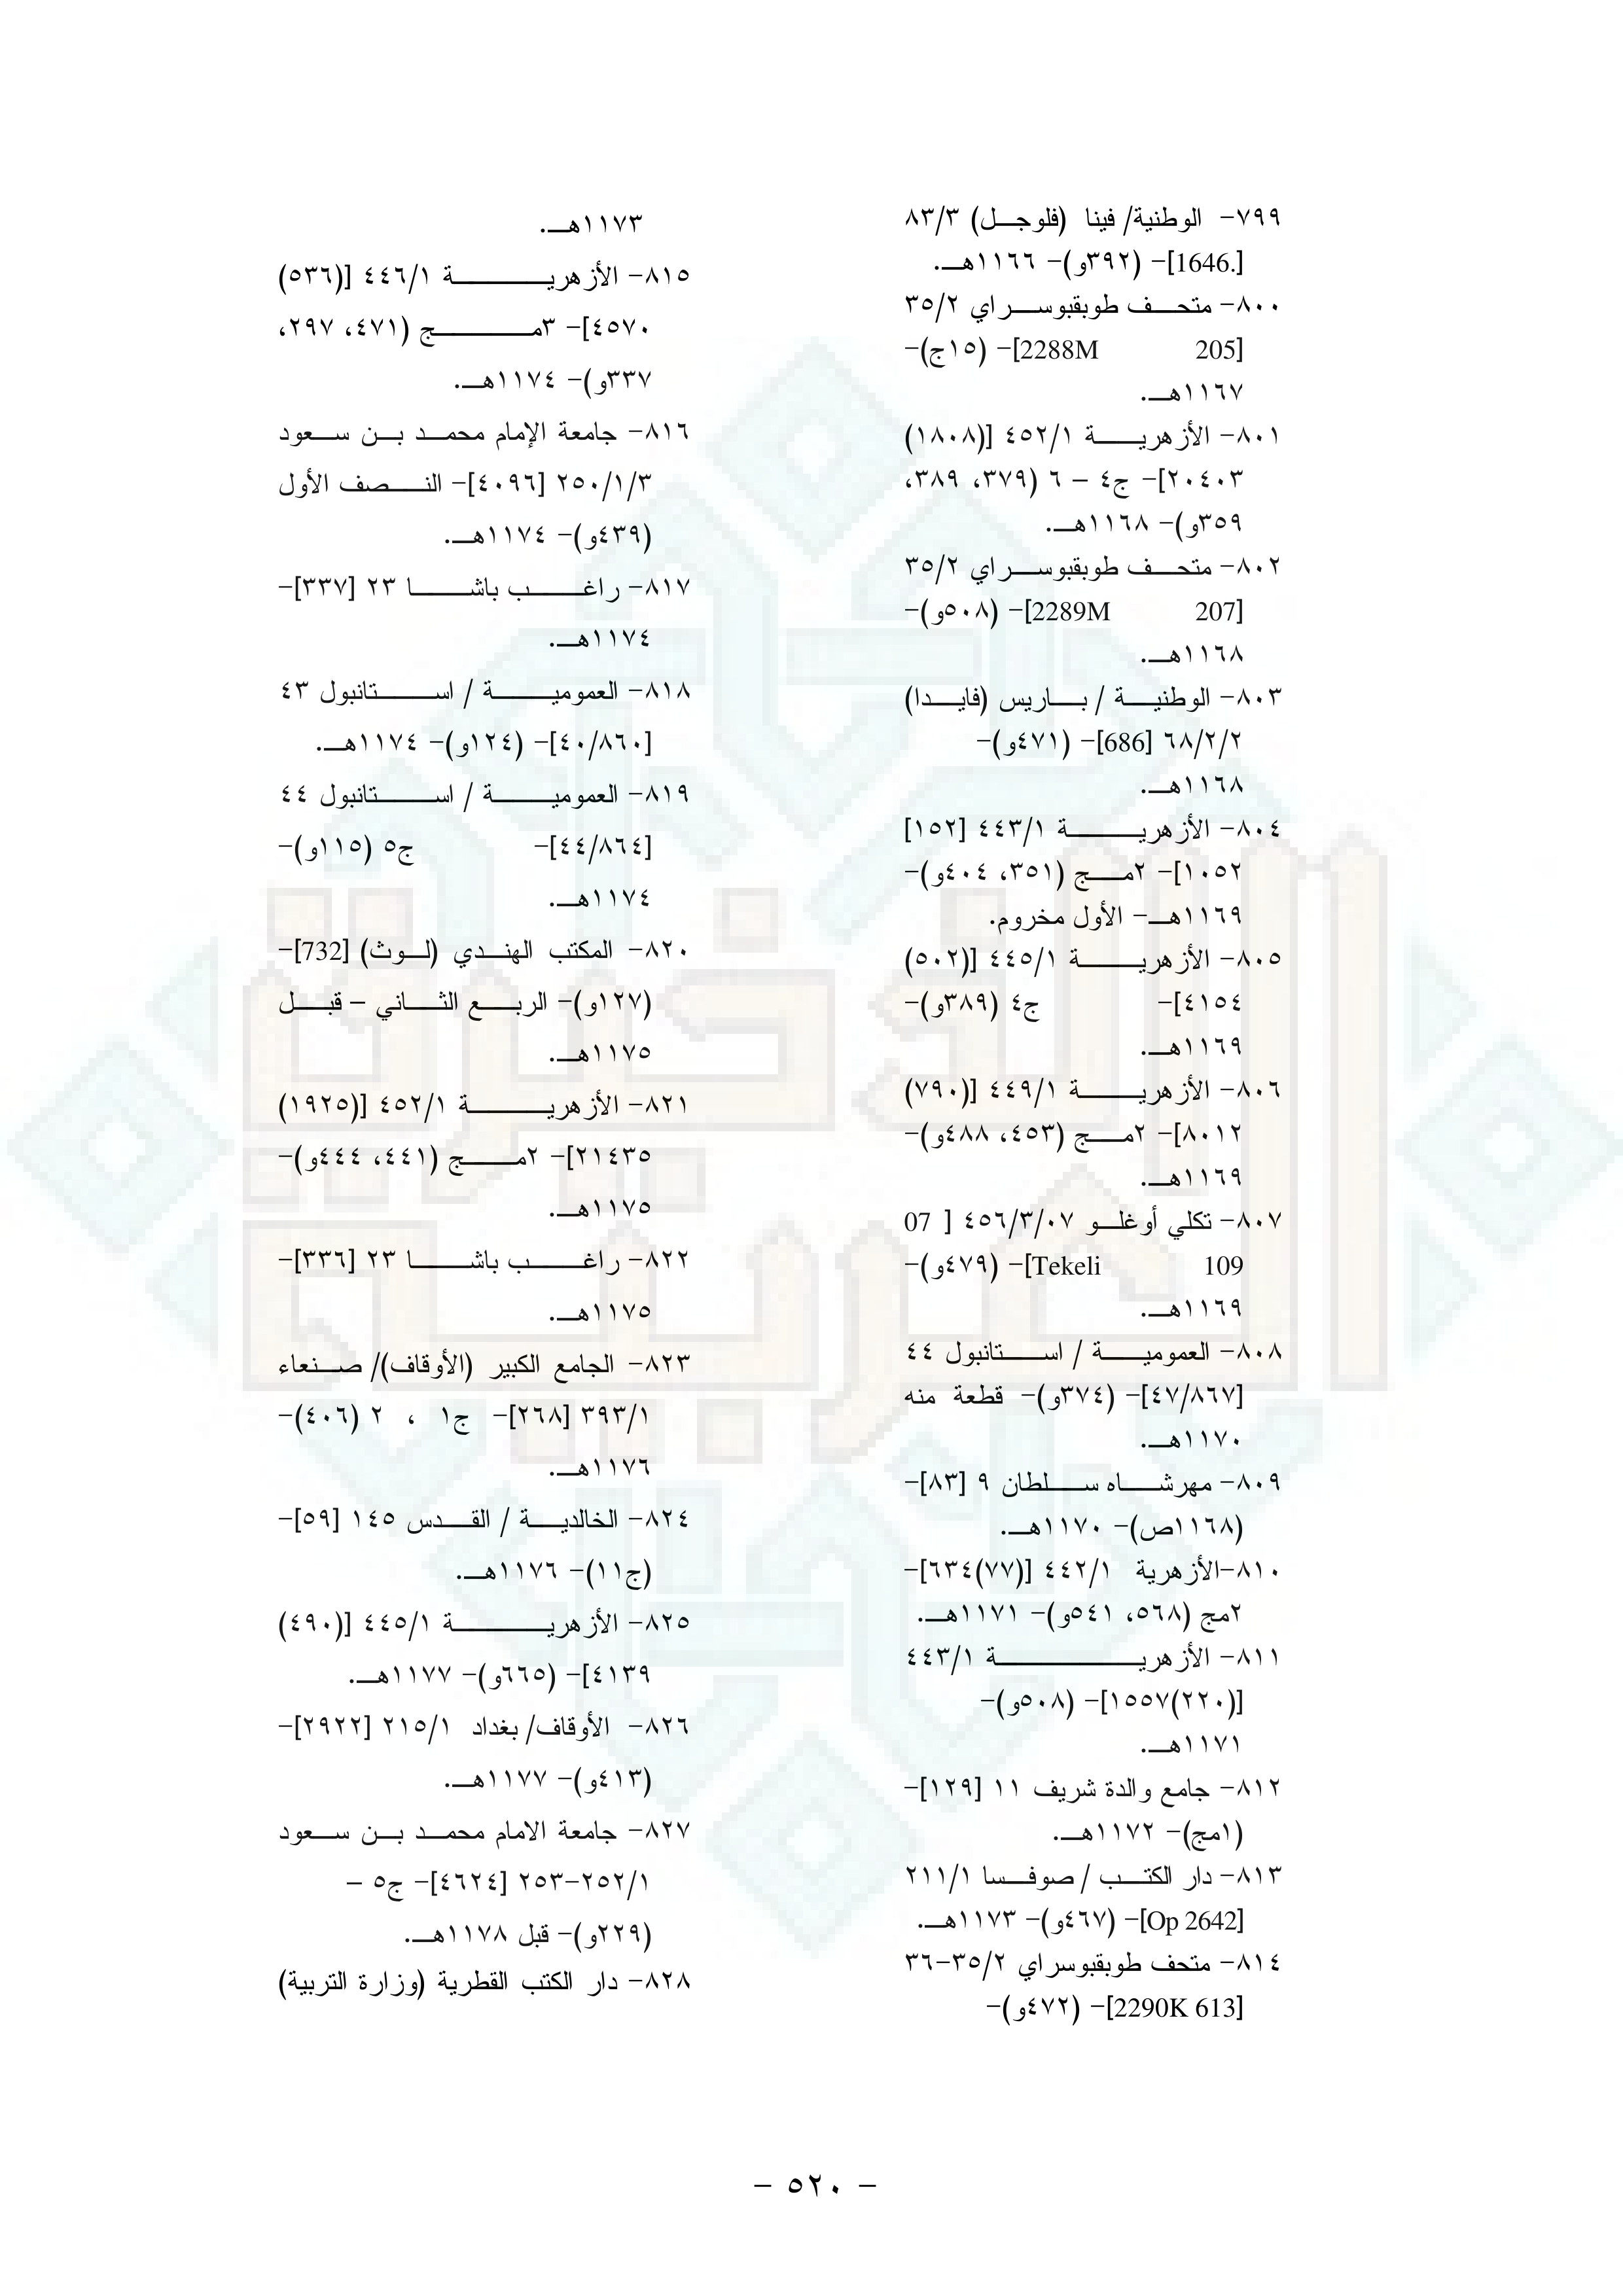 ٧٩٩- الوطنية/ فينا (فلوجل) ٨٣/٣
[1646.]- (٣٩٢و)- ١١٦٦هـ.
٨٠٠- متحف طوبقبوسراي ٣٥/٢
[2288M 205]- (١٥ج)-
١١٦٧هـ.
٨٠١- الأزهرية ٤٥٢/١ [(١٨٠٨)
٢٠٤٠٣]- ج٤ – ٦ (٣٧٩، ٣٨٩،
٣٥٩و)- ١١٦٨هـ.
٨٠٢- متحف طوبقبوسراي ٣٥/٢
[2289M 207]- (٥٠٨و)-
١١٦٨هـ.
٨٠٣- الوطنية / باريس (فايدا)
٦٨/٢/٢ [686]- (٤٧١و)-
١١٦٨هـ.
٨٠٤- الأزهرية ٤٤٣/١ [١٥٢]
١٠٥٢]- ٢مج (٣٥١، ٤٠٤و)-
١١٦٩هـ- الأول مخروم.
٨٠٥- الأزهرية ٤٤٥/١ [(٥٠٢)
٤١٥٤]- ج٤ (٣٨٩و)-
١١٦٩هـ.
٨٠٦- الأزهرية ٤٤٩/١ [(٧٩٠)
٨٠١٢]- ٢مج (٤٥٣، ٤٨٨و)-
١١٦٩هـ.
٨٠٧- تكلي أوغلو ٤٥٦/٣/٠٧ [ 07
Tekeli 109]- (٤٧٩و)-
١١٦٩هـ.
٨٠٨- العمومية / استانبول ٤٤
[٤٧/٨٦٧]- (٣٧٤و)- قطعة منه
١١٧٠هـ.
٨٠٩- مهرشاه سلطان ٩ [٨٣]-
(١١٦٨ص)- ١١٧٠هـ.
٨١٠-الأزهرية ٤٤٢/١ [(٧٧)٦٣٤]-
٢مج (٥٦٨، ٥٤١و)- ١١٧١هـ.
٨١١- الأزهرية ٤٤٣/١
[(٢٢٠)١٥٥٧]- (٥٠٨و)-
١١٧١هـ.
٨١٢- جامع والدة شريف ١١ [١٢٩]-
(١مج)- ١١٧٢هـ.
٨١٣- دار الكتب / صوفسا ٢١١/١
[Op 2642]- (٤٦٧و)- ١١٧٣هـ.
٨١٤- متحف طوبقبوسراي ٣٥/٢-٣٦
[2290K 613]- (٤٧٢و)-
١١٧٣هـ.
٨١٥- الأزهرية ٤٤٦/١ [(٥٣٦)
٤٥٧٠]- ٣مج (٤٧١، ٢٩٧،
٣٣٧و)- ١١٧٤هـ.
٨١٦- جامعة الإمام محمد بن سعود
٢٥٠/١/٣ [٤٠٩٦]- النصف الأول
(٤٣٩و)- ١١٧٤هـ.
٨١٧- راغب باشا ٢٣ [٣٣٧]-
١١٧٤هـ.
٨١٨- العمومية / استانبول ٤٣
[٤٠/٨٦٠]- (١٢٤و)- ١١٧٤هـ.
٨١٩- العمومية / استانبول ٤٤
[٤٤/٨٦٤]- ج٥ (١١٥و)-
١١٧٤هـ.
٨٢٠- المكتب الهندي (لوث) [732]-
(١٢٧و)- الربع الثاني – قبل
١١٧٥هـ.
٨٢١- الأزهرية ٤٥٢/١ [(١٩٢٥)
٢١٤٣٥]- ٢مج (٤٤١، ٤٤٤و)-
١١٧٥هـ.
٨٢٢- راغب باشا ٢٣ [٣٣٦]-
١١٧٥هـ.
٨٢٣- الجامع الكبير (الأوقاف)/ صنعاء
٣٩٣/١ [٢٦٨]- ج١ ، ٢ (٤٠٦)-
١١٧٦هـ.
٨٢٤- الخالدية / القدس ١٤٥ [٥٩]-
(ج١١)- ١١٧٦هـ.
٨٢٥- الأزهرية ٤٤٥/١ [(٤٩٠)
٤١٣٩]- (٦٦٥و)- ١١٧٧هـ.
٨٢٦- الأوقاف/ بغداد ٢١٥/١ [٢٩٢٢]-
(٤١٣و)- ١١٧٧هـ.
٨٢٧- جامعة الامام محمد بن سعود
٢٥٢/١-٢٥٣ [٤٦٢٤]- ج٥ –
(٢٢٩و)- قبل ١١٧٨هـ.
٨٢٨- دار الكتب القطرية (وزارة التربية)
الذخيرة
العربية
- ٥٢٠ -